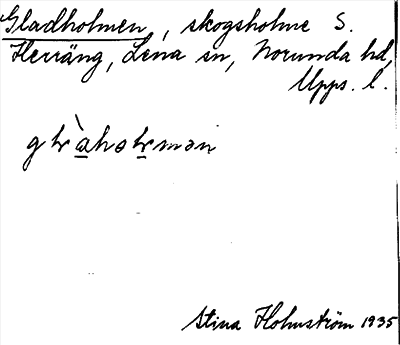 Gladholmen, skogsholme S.
Herräng, Lena sn, Norunda hd,
Upps. l.
Stina Holmström 1935